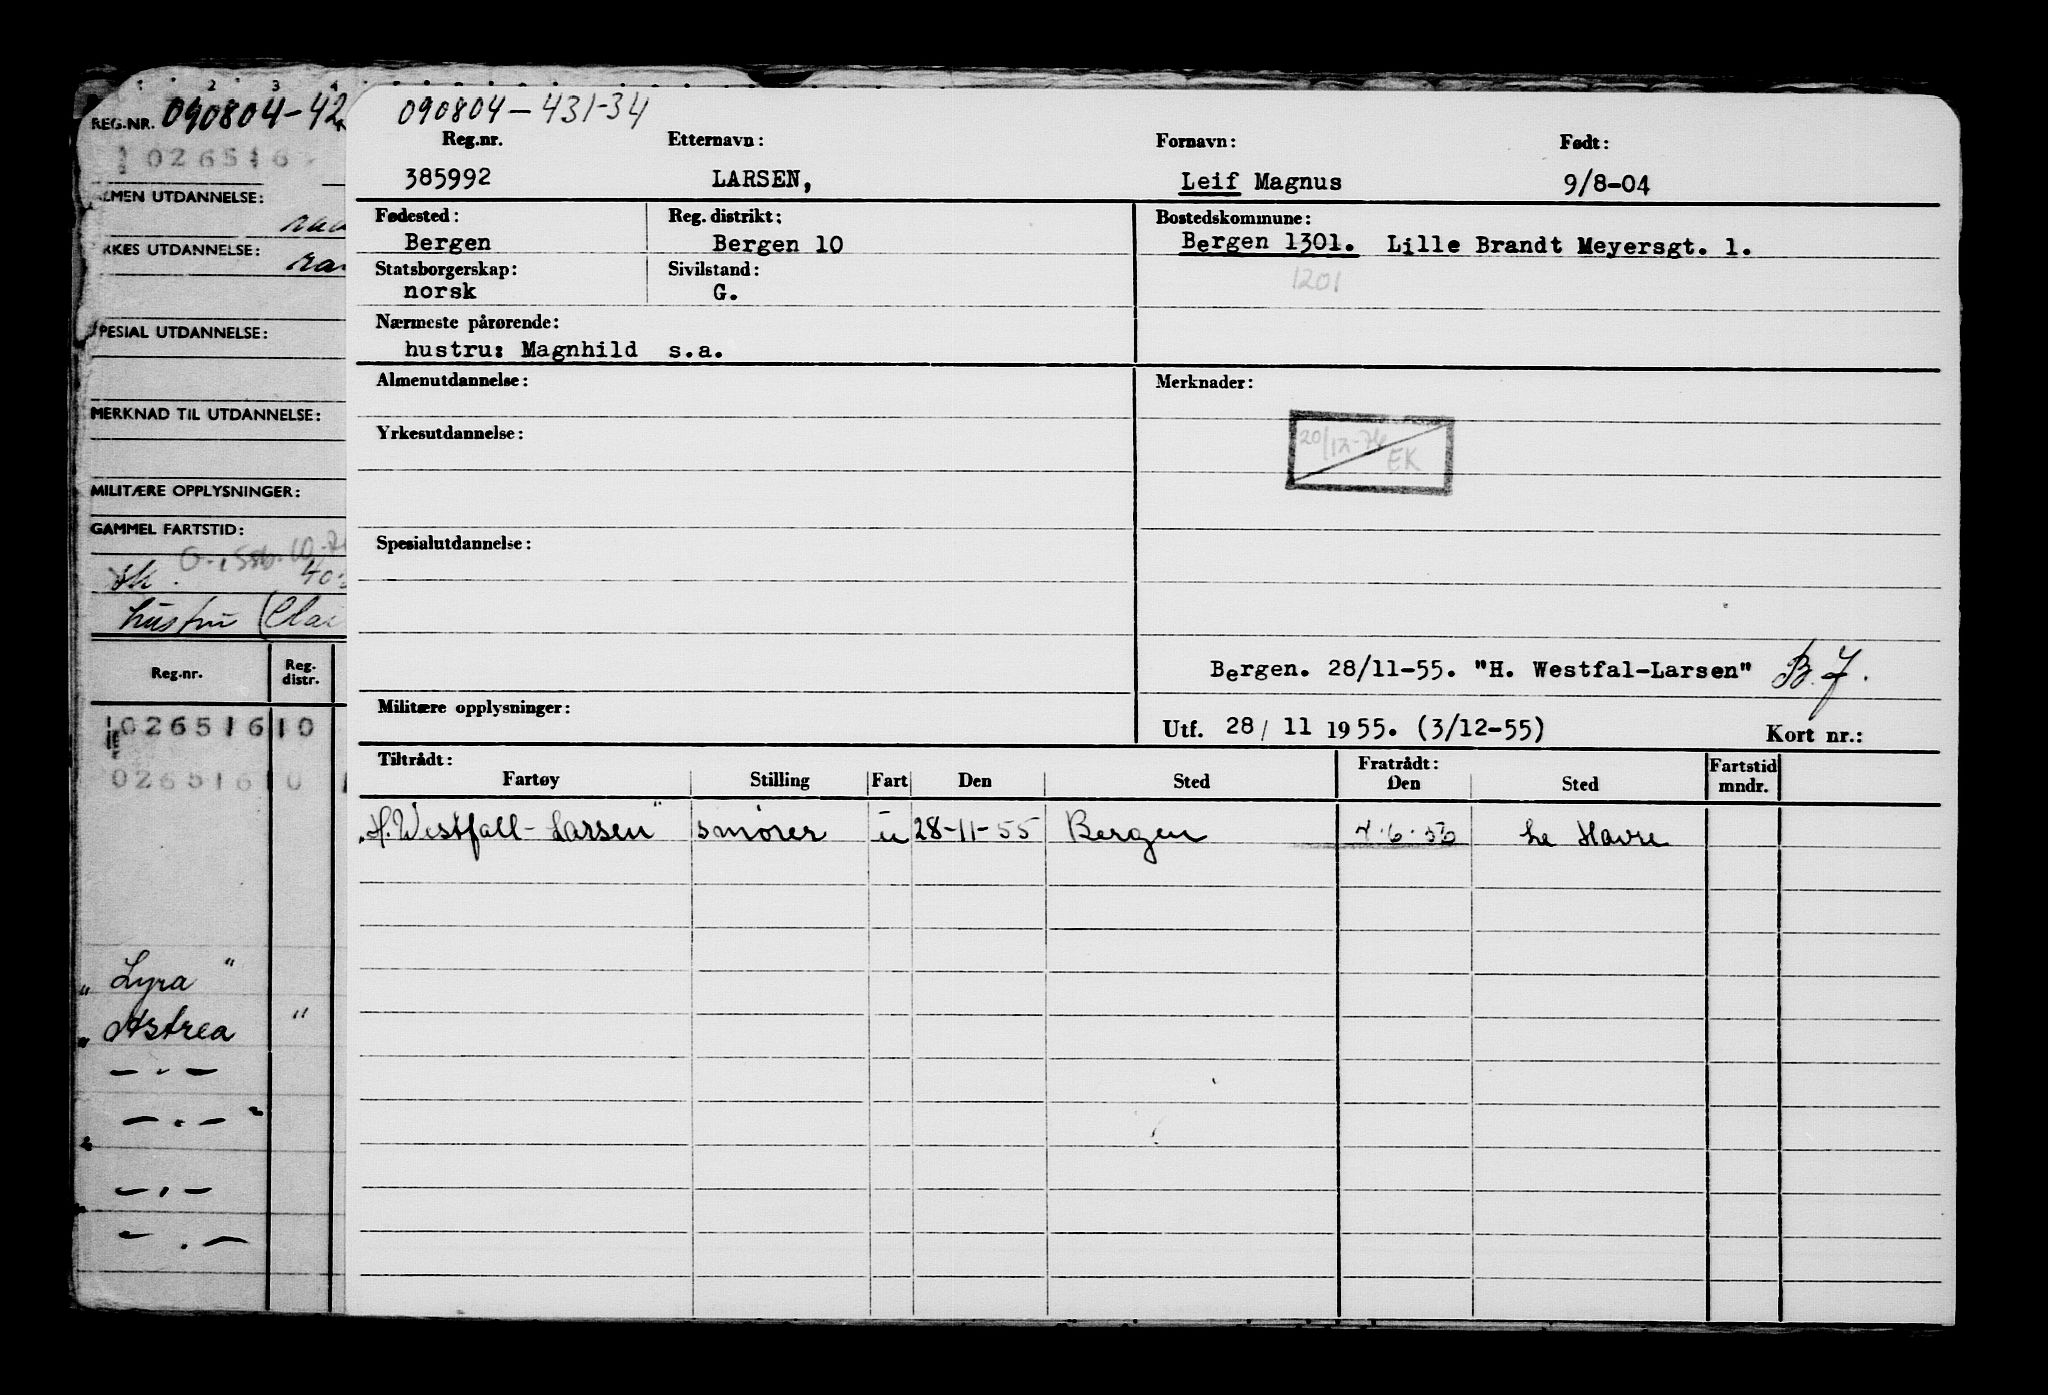 1 2 3 4
REG.NR. 090804-42
026516
LMEN UTDANNELSE:
RKES UTDANNELSE:
PESIAL UTDANNELSE:
MERKNAD TIL UTDANNELSE:
MILITÆRE OPPLYSNINGER:
GAMMEL FARTSTID:
hustru
Reg.nr. Reg. distr.
026516 10
026516 10
"Lyra"
"Astrea "
— " —
— " —
— " —
— " —
090804-431-34
Reg.nr. Etternavn: Fornavn: Født:
385992 LARSEN, Leif Magnus 9/8-04
Fødested: Reg. distrikt: Bostedskommune:
Bergen Bergen 10 Bergen 1301. Lille Brandt Meyersgt. 1.
Statsborgerskap: Sivilstand:
norsk G. 1201
Nærmeste pårørende:
hustru: Magnhild s.a.
Almenutdannelse: Merknader:
Yrkesutdannelse:
20/12-74 EK
Spesialutdannelse:
Bergen. 28/11-55. "H. Westfal-Larsen" B.J.
Militære opplysninger:
Utf. 28/ 11 1955. (3/12-55) Kort nr.:
Tiltrådt: Fratrådt: Fartstid
Fartøy Stilling Fart Den Sted Den Sted mndr.
"H. Westfall-Larsen" smører u 28-11-55 Bergen 7.6.56 Le Havre